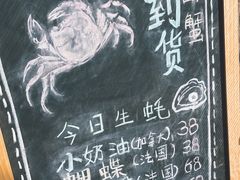 蟹
到货
今日生蚝
小奶油(加拿大)38
蝴蝶(法国)38
(法国)68
68